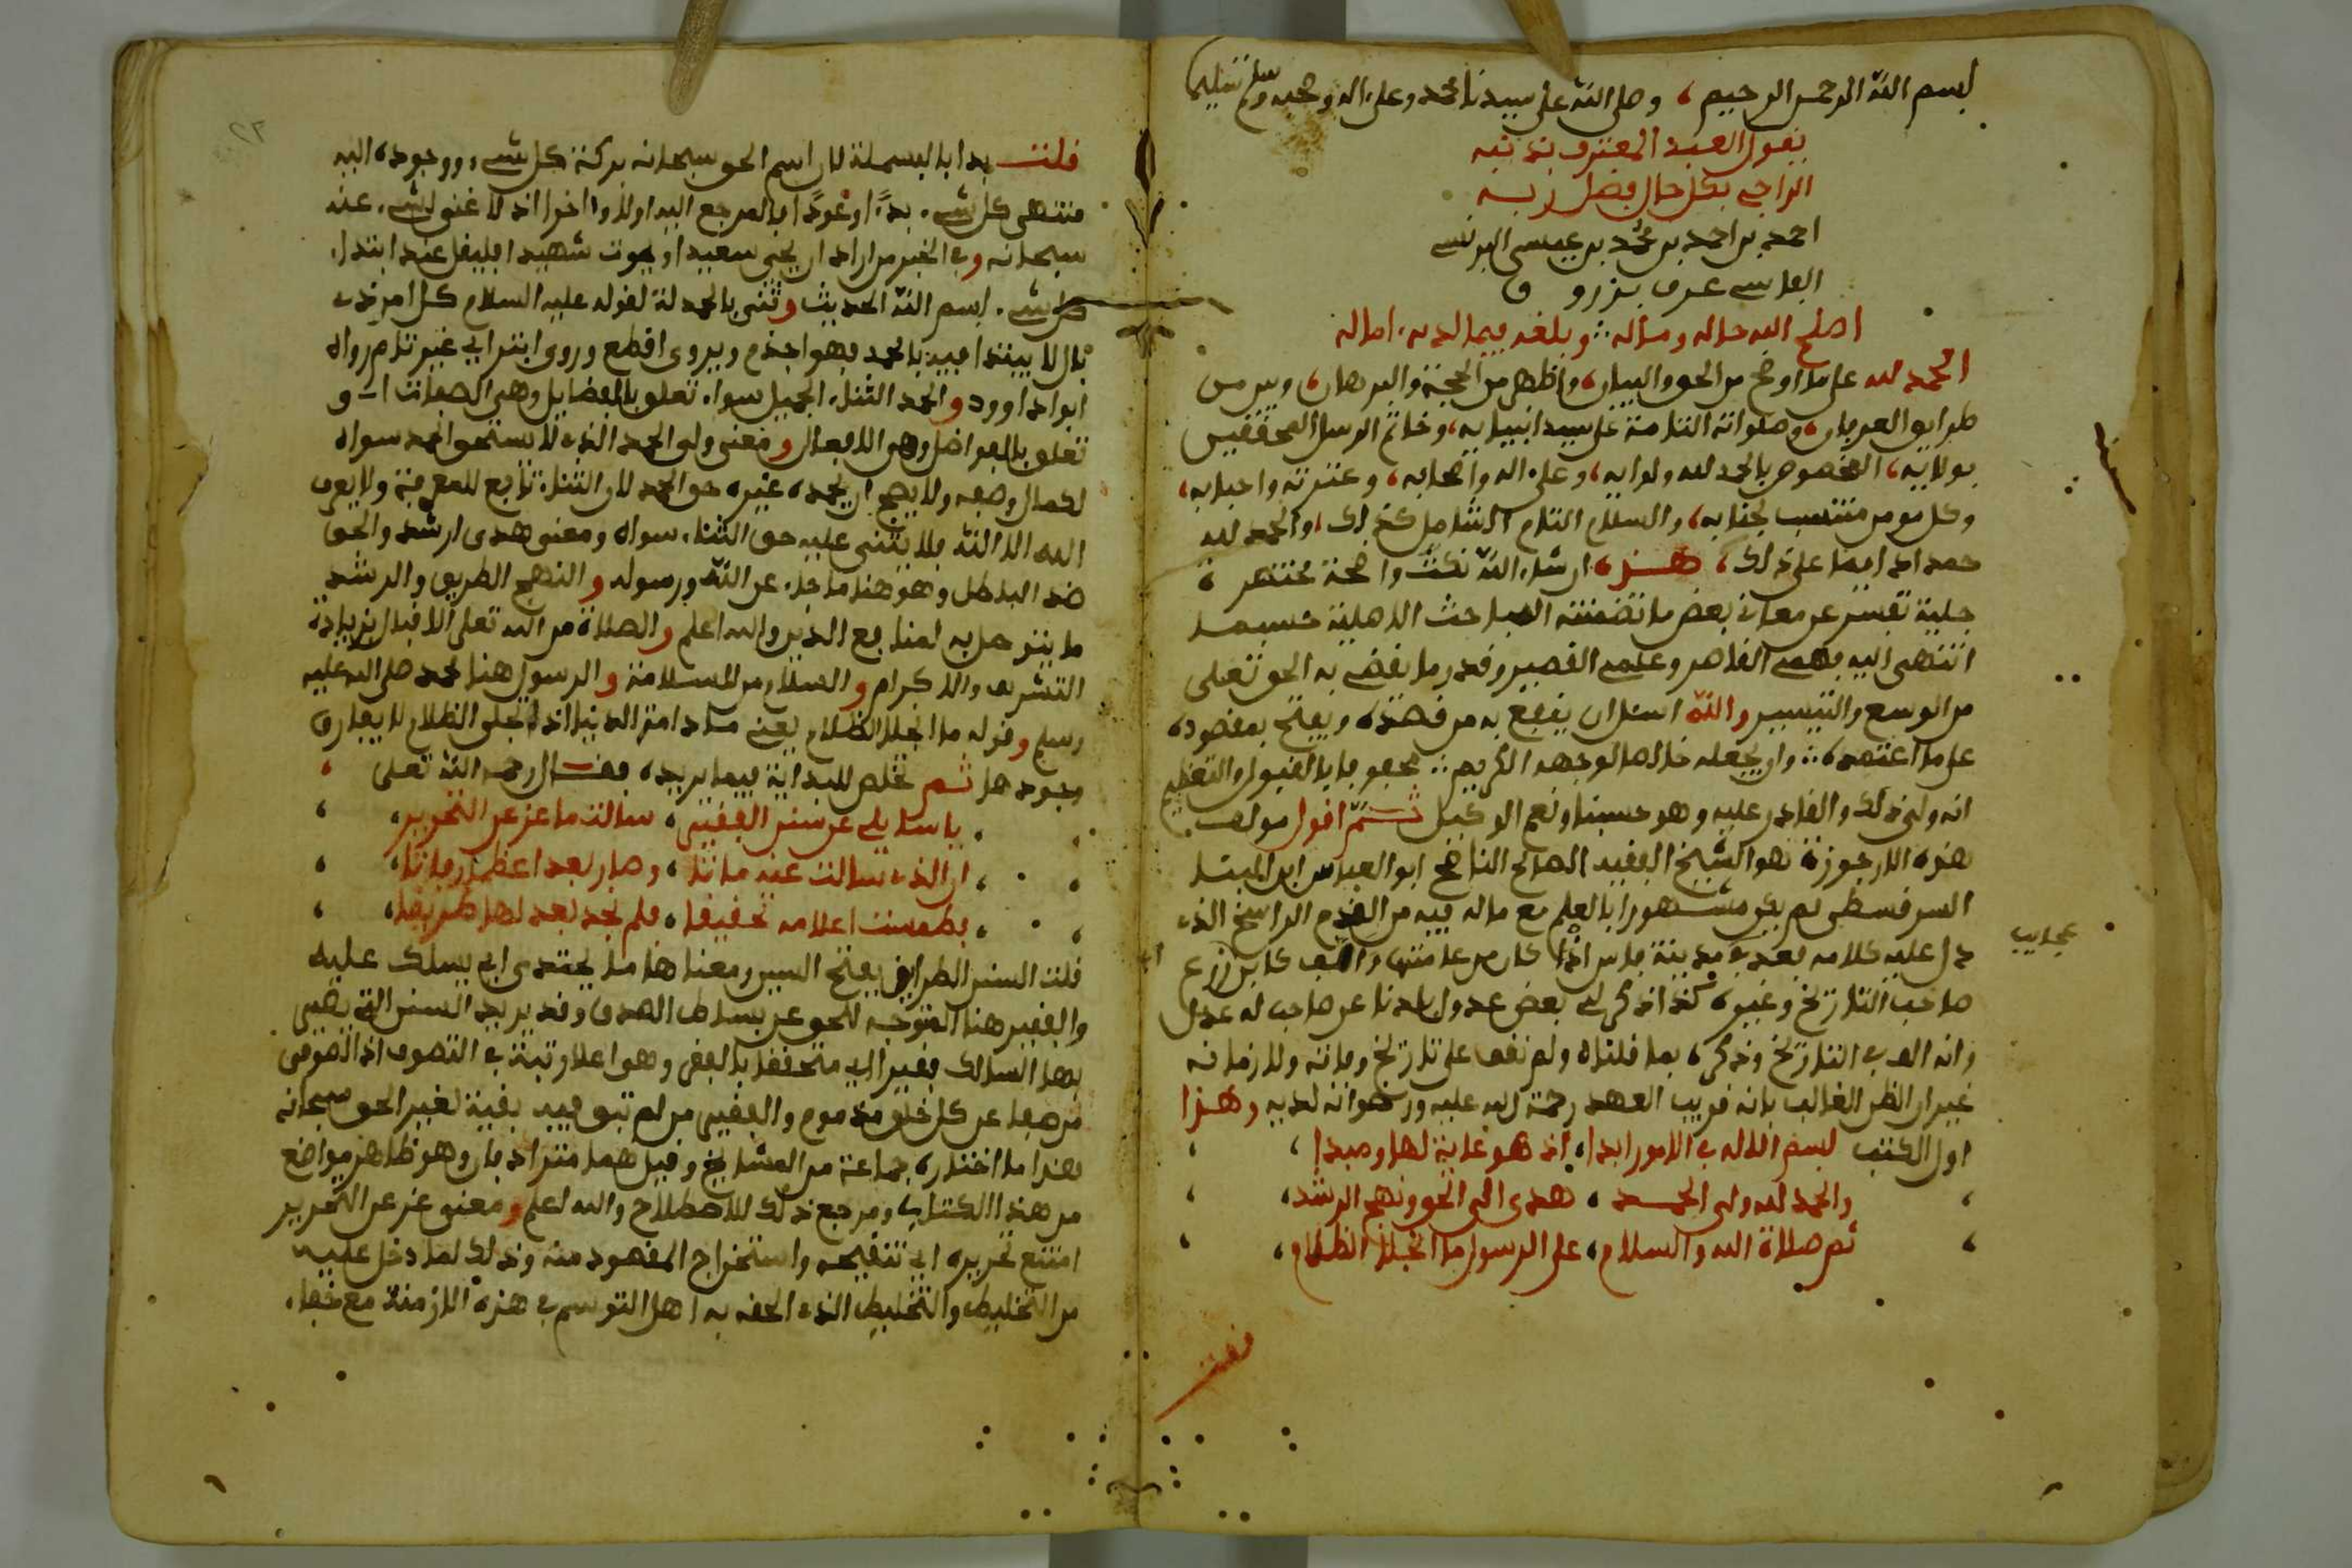 بسم الله الرحمن الرحيم، وصلى الله على سيدنا محمد وعلى اله وصحبه وسلم تسليما
يقول العبد المعترف بذنبه
الراجي بكل حال فضل ربه
احمد بن احمد بن محمد بن عيسى البرنسي
الفاسي عرف بزروق
اصلح الله حاله ومئاله ∴ وبلغه فيما لديه اماله
الحمد لله على ما اوضح من الحق والبيان، واظهر من الحجة والبرهان، وبين من
طرايق العرفان، وصلواته التامة على سيد انبيايه، وخاتم الرسل المحققين
بولايه، المخصوص بالحمد لله ولوايه، وعلى اله واصحابه، وعترته واحبابه،
وكل مومن منتسب لجنابه، والسلام التام الشامل كذلك، والحمد لله
حمدا دايما على ذلك، هذه ان شاء الله نكت واضحة مختصرة
جلية تفسر عن معاني بعض ما تضمنته المباحث الاصلية حسبما
انتهى اليه فهمي القاصر وعلمي القصير وقدر ما يقضي به الحق تعلى
من الوسع والتيسير والله اسئل ان ينفع به من قصده ويفتح بمقصوده
على ما اعتمده ∴ وان يجعله خالصا لوجهه الكريم ∴ محفوفا بالقبول والتعظيم
انه ولي ذلك والقادر عليه وهو حسبنا ونعم الوكيل ثم اقول مولف
هذه الارجوزة هو الشيخ الفقيه الصالح الناصح ابو العباس ابن البنا
السرقسطي لم يكن مشهورا بالعلم مع ما له فيه من القدم الراسخ الذي
دل عليه كلامه بعد في مدينة فاس اذا كان من عامتها والف كابن زرع
صاحب التاريخ وغيره كذا ذكر لي بعض عدول بلدنا عن صاحب له عدل
وانه الف في التاريخ وذكره بما قلناه ولم نقف على تاريخ وفاته ولا زمانه
غير ان الظن الغالب بانه قريب العهد رحمة الله عليه ورضوانه لديه وهذا
اول الكتب بسم الاله في الامور ابدا، اذ هو غاية لها ومبدا،
والحمد لله ولي الحمد، هدى الى الحق ونهج الرشد،
ثم صلاة الله والسلام، على الرسول ما انجلا الظلام،
عجايب
قلت
قلت بدا بالبسملة لان اسم الحق سبحانه بركة كل شيء ووجوده اليه
منتهى كل شيء بدءا وعودا فالمرجع اليه اولا واخرا اذ لا غنى لشيء عنه
سبحانه وفي الخبر من اراد ان يحيى سعيدا او يموت شهيدا فليقل عند ابتداء
كل شيء بسم الله الحديث وثنى بالحمدلة لقوله عليه السلام كل امر ذي
بال لا يبتدا فيه بالحمد فهو اجذم ويروى اقطع وروى ابتر اي غير تام رواه
ابو داوود والحمد الثناء الجميل سواء تعلق بالفضايل وهي الصفات او
تعلق بالفواضل وهي الافعال ومعنى ولي الحمد الذي لا يستحق الحمد سواه
لكمال وصفه ولا يصح ان يحمده غيره حق الحمد لان الثناء تابع للمعرفة ولا يعرف
الله الا الله فلا يثنى عليه حق الثناء سواه ومعنى هدى ارشد والحق
ضد الباطل وهو هنا ما جاء عن الله ورسوله والنهج الطريق والرشد
ما يتوصل به لمنافع الدين والله اعلم والصلاة من الله تعلى الاقبال بزيادة
التشريف والاكرام والسلام من السلامة والرسول هنا محمد صلى الله عليه
وسلم وقوله ما انجلا الظلام يعني ما دامت الدنيا اذ انجلى الظلام لا يفارق
وجودها ثم تخلص للبداية فيما يريده فقال رحمه الله تعلى
يا سايلي عن سنن الفقير، سالت ما عز عن التحرير،
ان الذي سالت عنه ماتا، وصار بعد اعظم رفاتا،
فطمست اعلامه تحقيقا، فلم نجد بعد لها طريقا،
قلت السنن الطرايق بفتح السين ومعناها ما يحتدى اي يسلك عليه
والفقير هنا المتوجه للحق عن بساط الصدق وقد يريد السنن التي يصير
بها السالك فقيرا اي متحققا بالفقر وهو اعلا رتبة في التصوف اذ الصوفي
من صفا عن كل خلق مذموم والفقير من لم تبق فيه بقية لغير الحق سبحانه
هذا ما اختاره جماعة من المشايخ وقيل هما مترادفان وهو ظاهر مواضع
من هذا الكتاب ومرجع ذلك للاصطلاح والله اعلم ومعنى عز عن التحرير
امتنع تحريره اي تنقيحه واستخراج المقصود منه وذلك لما دخل عليه
من التخليط والتخبيط الذي الحقه به اهل التوسم في هذه الازمنة مع خفاء